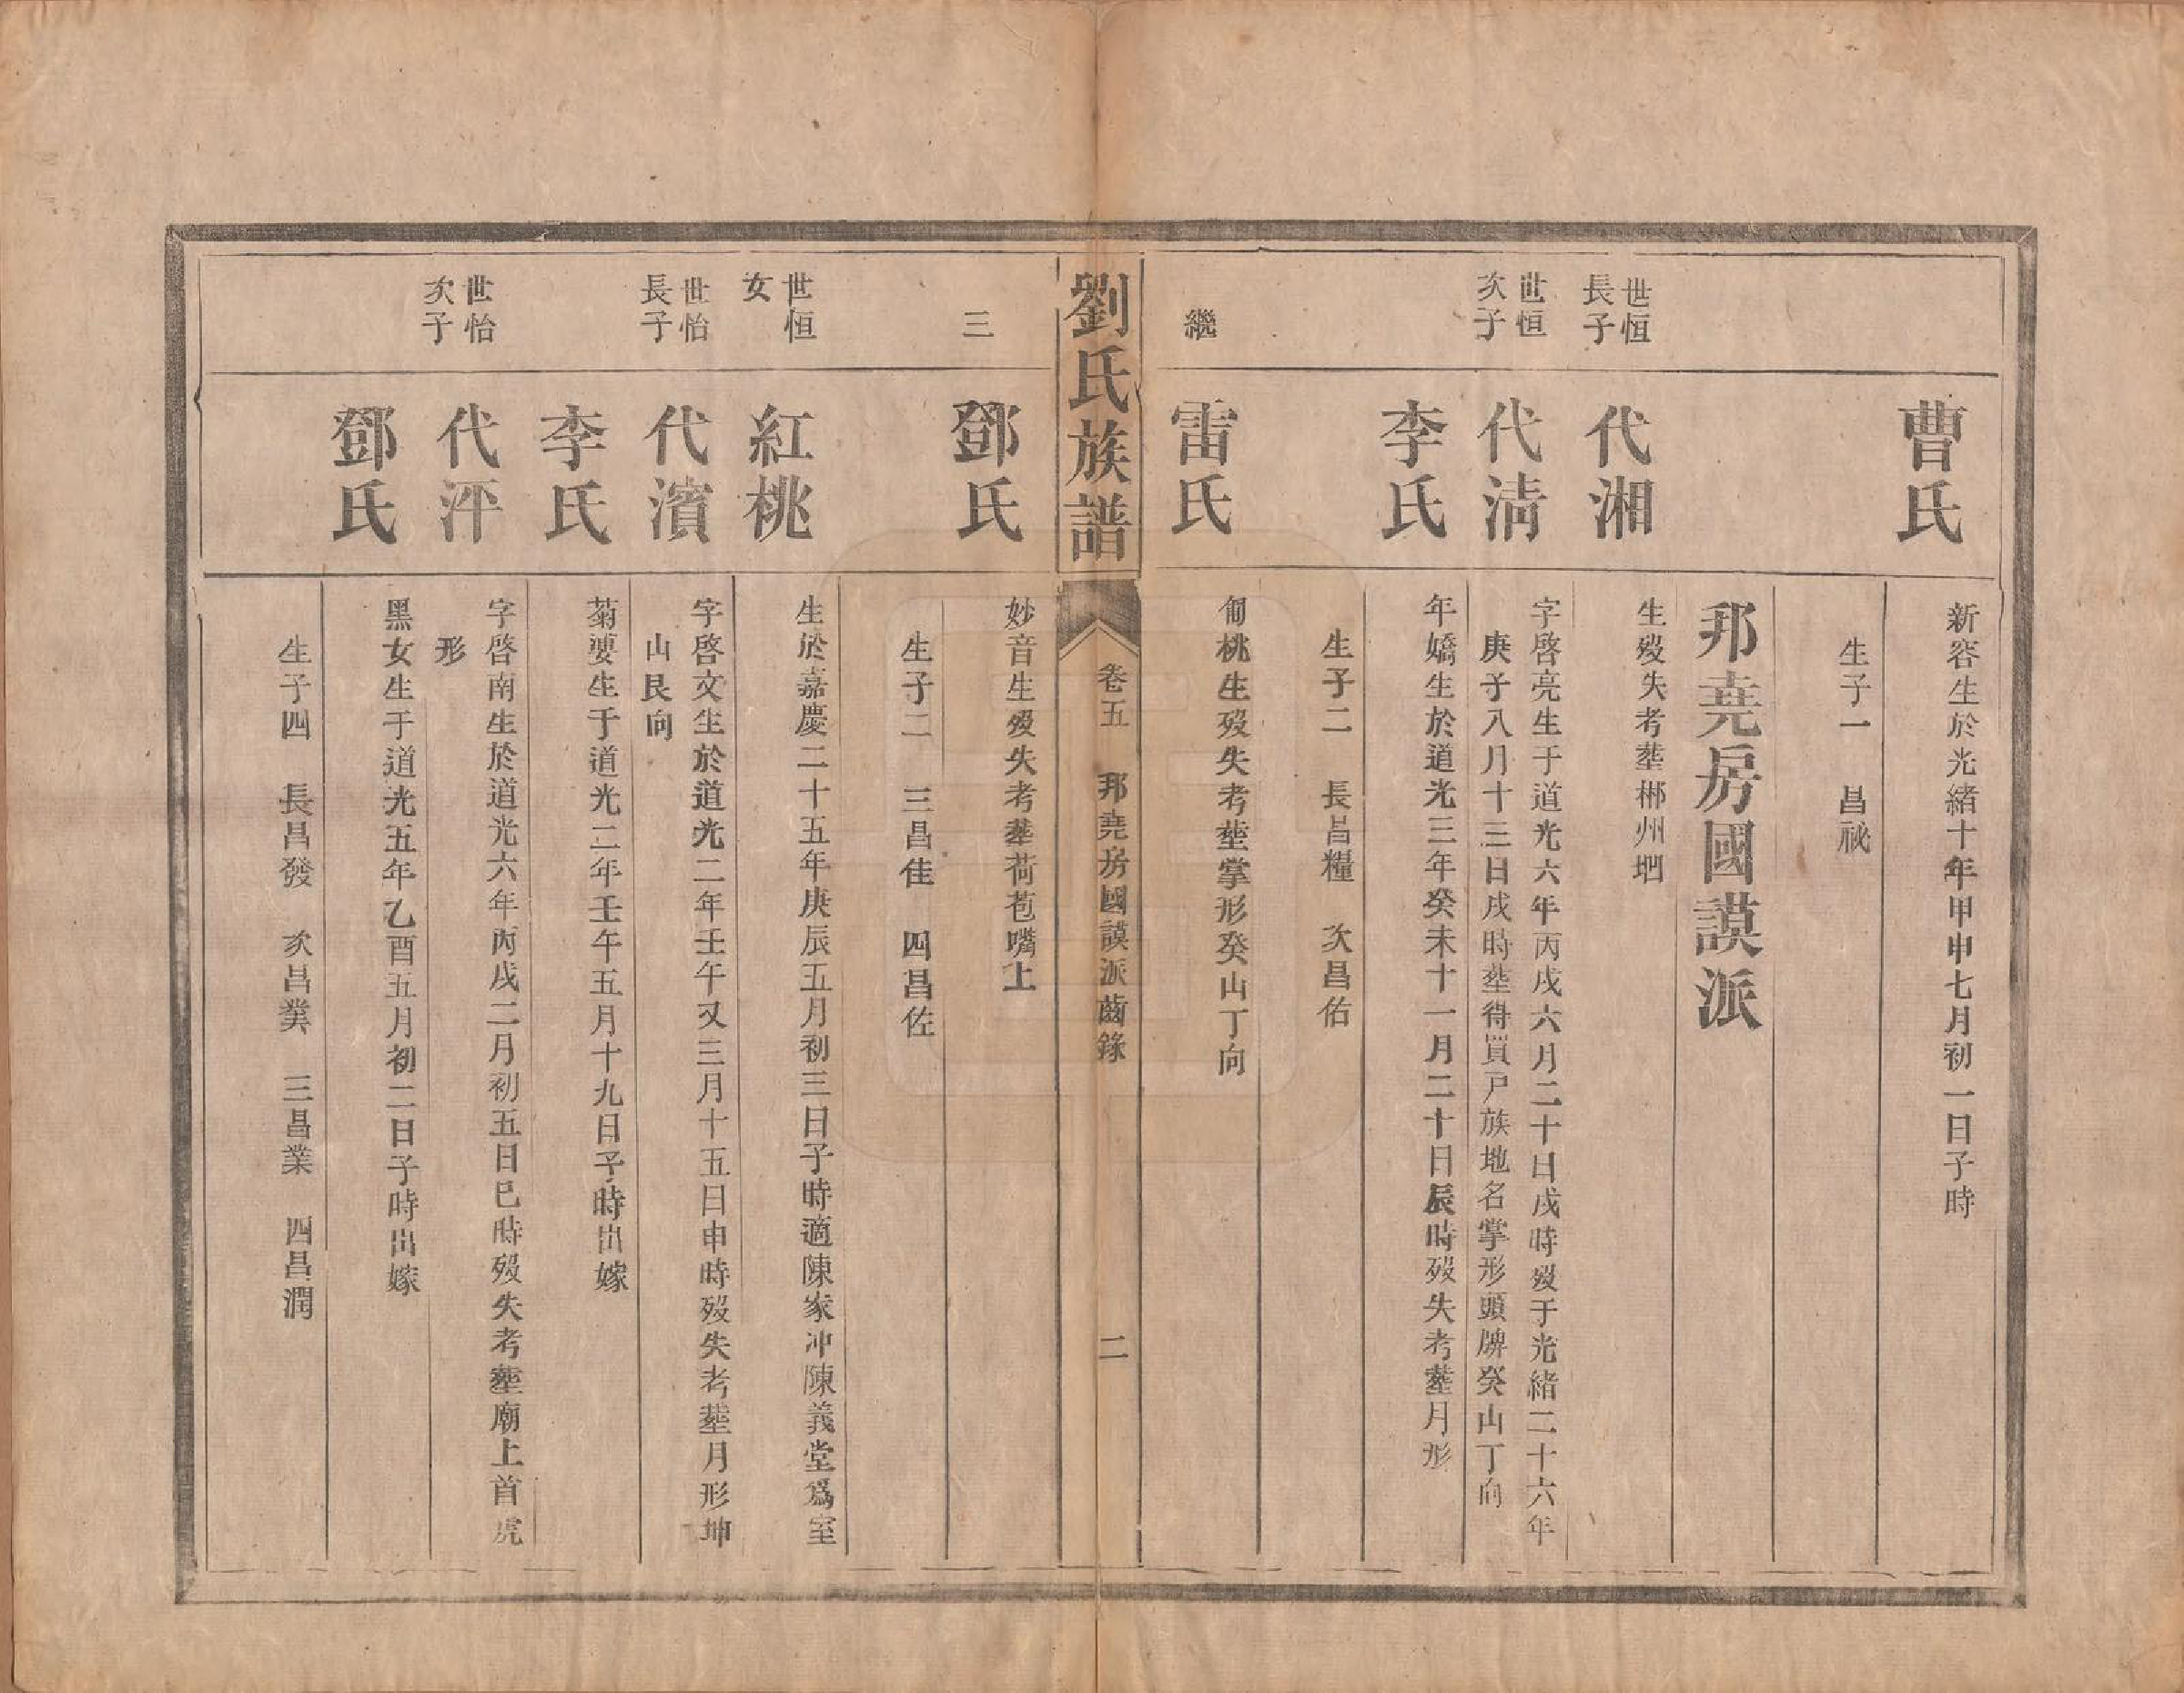 曹氏
新容生於光緒十年甲申七月初一日子時
生子一 昌祕
邦堯房國謨派
世恒
長子
代湘
生歿失考塟郴州塘
世恒
次子
代淸
字啓亮生于道光六年丙戌六月二十日戌時歿于光緒二十六年
庚子八月十三日戌時塟得買尸族地名掌形頭牌癸山丁向
李氏
年嬌生於道光三年癸未十一月二十日辰時歿失考塟月形
生子二 長昌糧 次昌佑
繼
雷氏
匍桃生歿失考塟掌形癸山丁向
劉氏族譜
卷五 邦堯房國謨派齒錄
二
三
鄧氏
妙音生歿失考塟荷苞嘴上
生子二 三昌佳 四昌佐
世恒
女
紅桃
生於嘉慶二十五年庚辰五月初三日子時適陳家冲陳義堂爲室
世怡
長子
代濱
字啓文生於道光二年壬午又三月十五日申時歿失考塟月形坤
山艮向
李氏
菊嬰生于道光二年壬午五月十九日子時出嫁
世怡
次子
代泙
字啓南生於道光六年丙戌二月初五日巳時歿失考塟廟上首虎
形
鄧氏
黑女生于道光五年乙酉五月初二日子時出嫁
生子四 長昌發 次昌業 三昌業 四昌潤